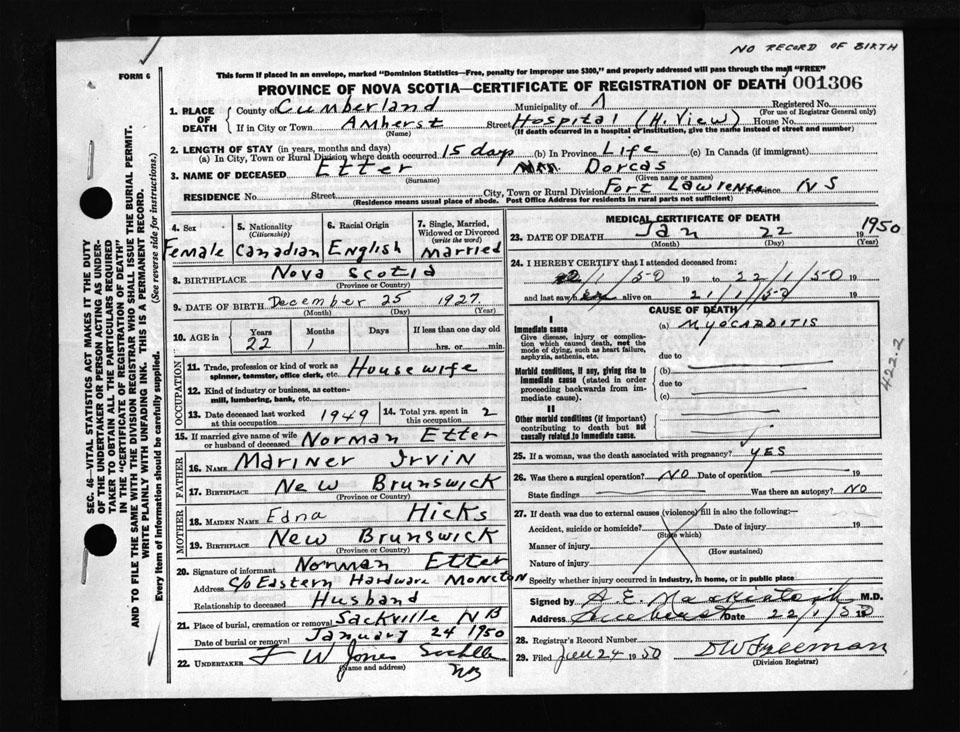 NO RECORD OF BIRTH
FORM 6
This form if placed in an envelope, marked "Dominion Statistics—Free, penalty for improper use $300," and properly addressed will pass through the mail "FREE"
PROVINCE OF NOVA SCOTIA—CERTIFICATE OF REGISTRATION OF DEATH 001306
1. PLACE OF DEATH
County of Cumberland Municipality of Registered No.
(For use of Registrar General only)
If in City or Town Amherst Street Hospital (H. View) House No.
(Name) (If death occurred in a hospital or institution, give the name instead of street and number)
2. LENGTH OF STAY (in years, months and days)
(a) In City, Town or Rural Division where death occurred 15 days (b) In Province Life (c) In Canada (if immigrant)
3. NAME OF DECEASED Etter Mrs. Dorcas
(Surname) (Given name or names)
RESIDENCE No. Street City, Town or Rural Division Fort Lawrence Province NS
(Residence means usual place of abode. Post Office Address for residents in rural parts not sufficient)
4. Sex Female
5. Nationality (Citizenship) Canadian
6. Racial Origin English
7. Single, Married, Widowed or Divorced (write the word) Married
8. BIRTHPLACE Nova Scotia
(Province or Country)
9. DATE OF BIRTH December 25 1927
(Month) (Day) (Year)
10. AGE in Years 22 Months 1 Days If less than one day old
hrs. or min.
OCCUPATION
11. Trade, profession or kind of work as spinner, teamster, office clerk, etc. Housewife
12. Kind of industry or business, as cotton-mill, lumbering, bank, etc.
13. Date deceased last worked at this occupation 1949
14. Total yrs. spent in this occupation 2
15. If married give name of wife or husband of deceased Norman Etter
FATHER
16. NAME Mariner Irvin
17. BIRTHPLACE New Brunswick
(Province or Country)
MOTHER
18. MAIDEN NAME Edna Hicks
19. BIRTHPLACE New Brunswick
(Province or Country)
20. Signature of informant Norman Etter
Address c/o Eastern Hardware Moncton
Relationship to deceased Husband
21. Place of burial, cremation or removal Sackville NB
Date of burial or removal January 24 1950
22. UNDERTAKER F W Jones
(Name and address) NB
MEDICAL CERTIFICATE OF DEATH
23. DATE OF DEATH Jan 22 1950
(Month) (Day) (Year)
24. I HEREBY CERTIFY that I attended deceased from:
/1/50 19 to 22/1/50 19
and last saw h alive on 21/1/50 19
CAUSE OF DEATH
I
Immediate cause (a) Myocarditis
Give disease, injury or complication which caused death, not the mode of dying, such as heart failure, asphyxia, asthenia, etc.
due to
Morbid conditions, if any, giving rise to immediate cause (stated in order proceeding backwards from immediate cause).
(b)
due to
(c)
II
Other morbid conditions (if important) contributing to death but not causally related to immediate cause.
422.2
25. If a woman, was the death associated with pregnancy? YES
26. Was there a surgical operation? NO Date of operation 19
State findings Was there an autopsy? NO
27. If death was due to external causes (violence) fill in also the following:—
Accident, suicide or homicide? Date of injury 19
(State which)
Manner of injury
(How sustained)
Nature of injury
Specify whether injury occurred in industry, in home, or in public place
Signed by A. E. Mackintosh M.D.
Address Amherst Date 22/1/50 19
28. Registrar's Record Number
29. Filed Jan 24 1950 DW Freeman
(Division Registrar)
SEC. 46—VITAL STATISTICS ACT MAKES IT THE DUTY
OF THE UNDERTAKER OR PERSON ACTING AS UNDER-
TAKER TO OBTAIN ALL THE PARTICULARS REQUIRED
IN THE "CERTIFICATE OF REGISTRATION OF DEATH"
AND TO FILE THE SAME WITH THE DIVISION REGISTRAR WHO SHALL ISSUE THE BURIAL PERMIT.
WRITE PLAINLY WITH UNFADING INK. THIS IS A PERMANENT RECORD.
Every item of information should be carefully supplied. (See reverse side for instructions.)